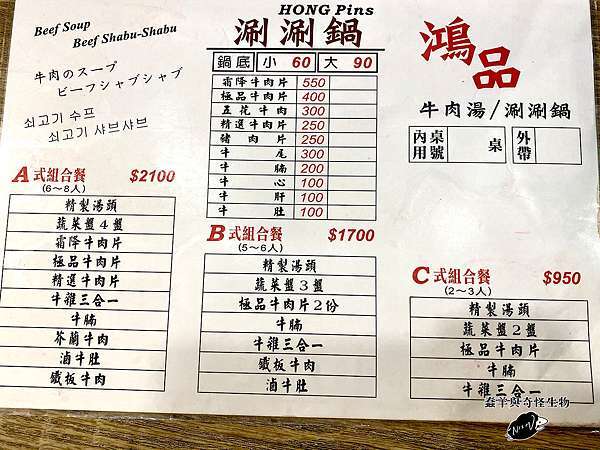 Beef Soup
Beef Shabu-Shabu
牛肉のスープ
ビーフシャブシャブ
쇠고기 수프
쇠고기 샤브샤브
HONG Pins
涮涮鍋
鍋底 小 60 大 90
霜降牛肉片 550
極品牛肉片 400
五花牛肉 300
精選牛肉片 250
豬肉片 250
牛尾 300
牛腩 200
牛心 100
牛肝 100
牛肚 100
鴻品
牛肉湯/涮涮鍋
內用 桌號 桌 外帶
A式組合餐 $2100
(6～8人)
精製湯頭
蔬菜盤4盤
霜降牛肉片
極品牛肉片
精選牛肉片
牛雜三合一
牛腩
芥蘭牛肉
滷牛肚
鐵板牛肉
B式組合餐 $1700
(5～6人)
精製湯頭
蔬菜盤3盤
極品牛肉片2份
牛腩
牛雜三合一
鐵板牛肉
滷牛肚
C式組合餐 $950
(2～3人)
精製湯頭
蔬菜盤2盤
極品牛肉片
牛腩
牛雜三合一
蠢羊與奇怪生物